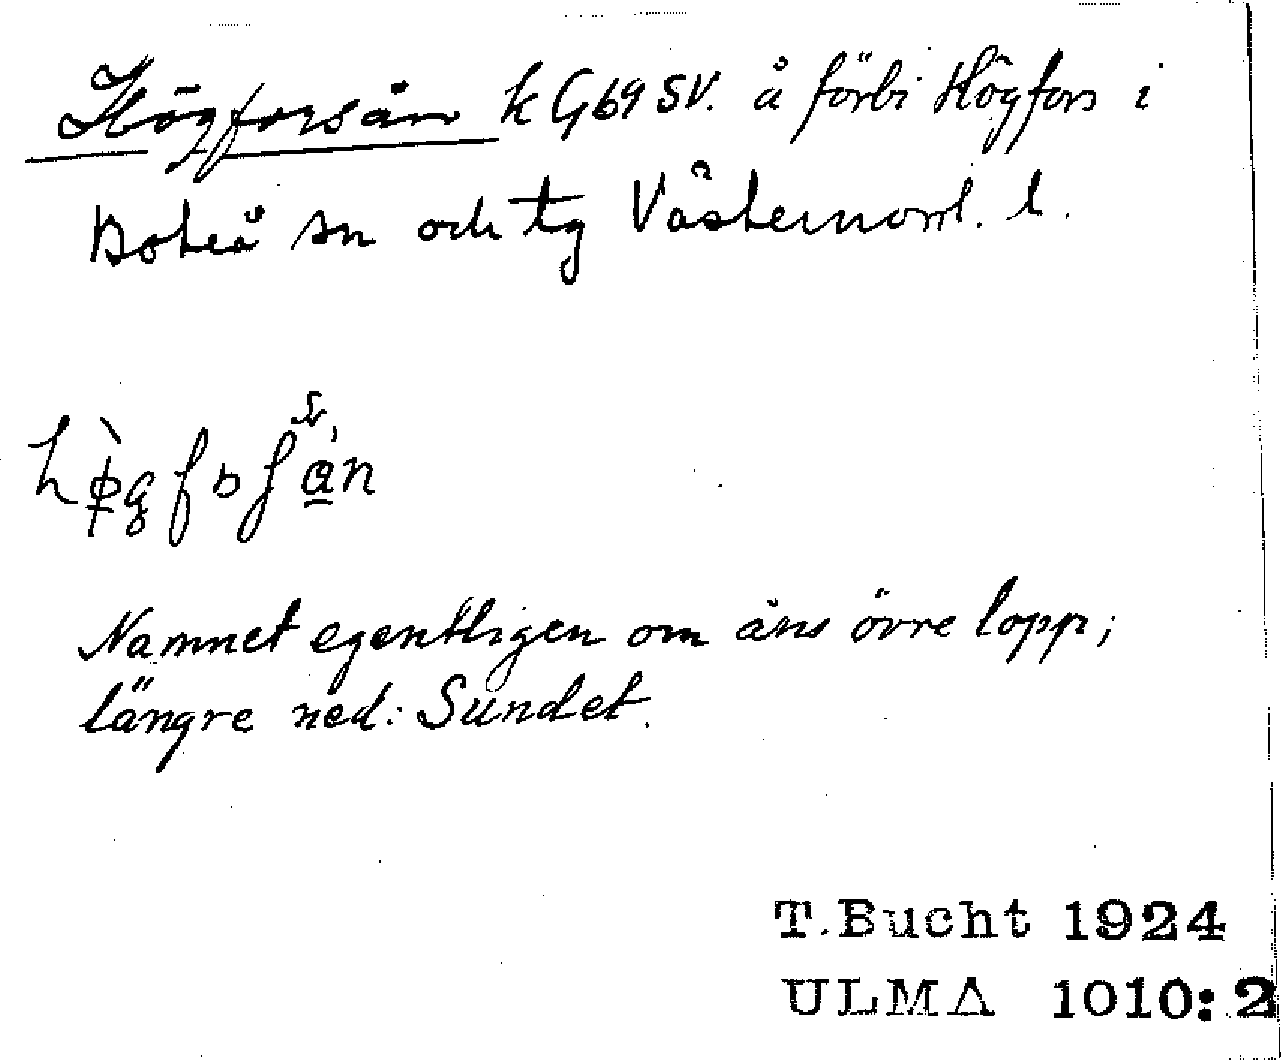 Högforsån k G69 SV. å förbi Högfors i
Boteå sn och tg Västernorrl. l.
Namnet egentligen om åns övre lopp;
längre ned: Sundet.
T.Bucht 1924
ULMA 1010:2